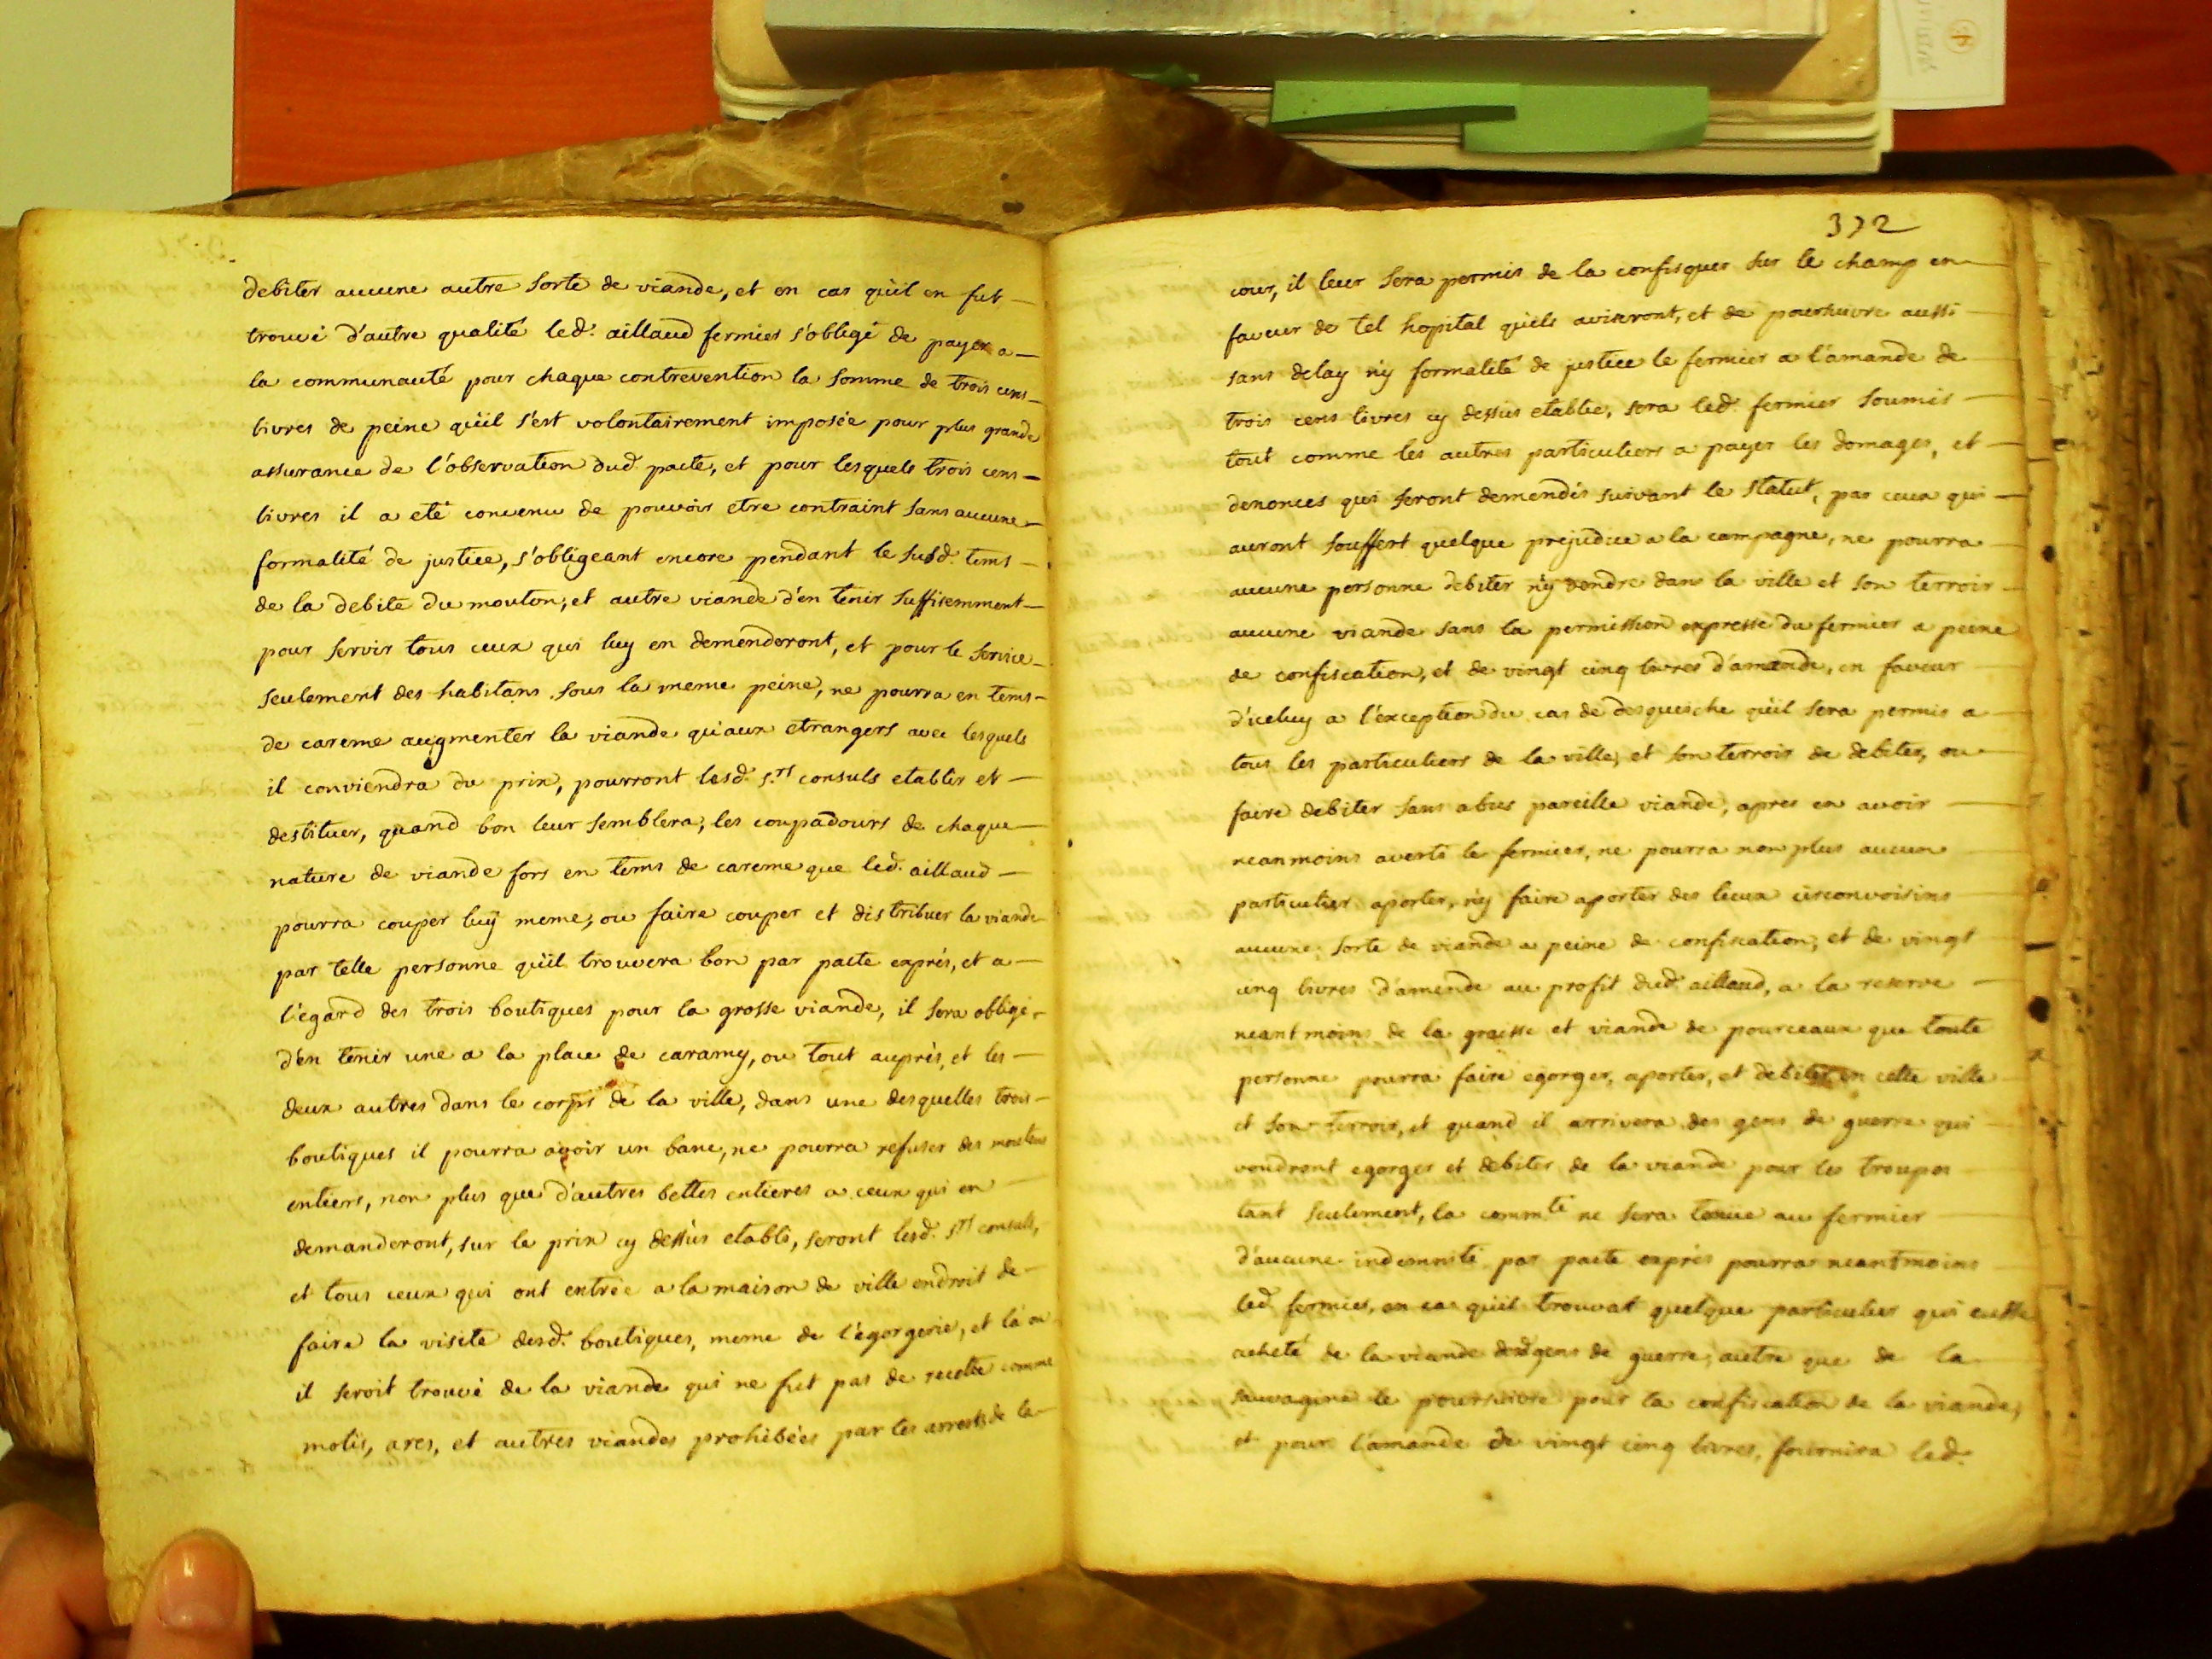 debiter aucune autre sorte de viande, et en cas qu'il en fut
trouvé d'autre qualité led. aillaud fermier s'obligé de payer a
la communauté pour chaque contrevention la somme de trois cens
livres de peine qu'il s'est volontairement imposée pour plus grande
assurance de l'observation dud. pacte, et pour lesquels trois cens
livres il a eté convenu de pouvoir etre contraint sans aucune
formalité de justice, s'obligeant encore pendant le susd. tems
de la debite du mouton, et autre viande d'en tenir suffisemment
pour servir tous ceux qui luy en demenderont, et pour le service
seulement des habitans sous la meme peine, ne pourra en tems
de careme augmenter la viande qu'aux etrangers avec lesquels
il conviendra du prix, pourront lesd. s.rs consuls etablir et
destituer, quand bon leur semblera, les coupadours de chaque
nature de viande fors en tems de careme que led. aillaud
pourra couper luy meme, ou faire couper et distribuer la viande
par telle personne qu'il trouvera bon par pacte exprés, et a
l'egard des trois boutiques pour la grosse viande, il sera obligé
d'en tenir une a la place de caramy, ou tout auprés, et les
deux autres dans le corps de la ville, dans une desquelles trois
boutiques il pourra avoir un banc, ne pourra refuser des moutons
entiers, non plus que d'autres bettes entieres a ceux qui en
demanderont, sur le prix cy dessus etabli, seront lesd. s.rs consuls,
et tous ceux qui ont entrée a la maison de ville endroit de
faire la visite desd. boutiques, meme de l'égorgerie, et là ou
il seroit trouvé de la viande qui ne fut pas de recette comme
motis, ares, et autres viandes prohibées par les arrests de la
372
cour, il leur sera permis de la confisquer sur le champ en
faveur de tel hopital qu'ils aviseront, et de poursuivre aussi
sans delay n'y formalité de justice le fermier a l'amande de
trois cens livres cy dessus établie, sera led. fermier soumis
tout comme les autres particuliers a payer les domages, et
denonces qui seront demendés suivant le statut, par ceux qui
auront souffert quelque prejudice a la campagne, ne pourra
aucune personne debiter n'y vendre dans la ville et son terroir
aucune viande sans la permission expresse du fermier a peine
de confiscation, et de vingt cinq livres d'amande, en faveur
d'iceluy a l'exception du cas de desqueiche qu'il sera permis a
tous les particuliers de la ville, et son terroir de debiter, ou
faire debiter sans abus pareille viande, apres en avoir
neanmoins averti le fermier, ne pourra non plus aucun
particulier aporter, n'y faire aporter des lieux circonvoisins
aucune sorte de viande a peine de confiscation, et de vingt
cinq livres d'amende au profit dud. aillaud, a la reserve
neantmoins de la graisse et viande de pourceaux que toute
personne pourra faire egorger, aporter, et debiter en cette ville
et son terroir, et quand il arrivera des gens de guerre qui
voudront egorger et debiter de la viande pour les troupes
tant seulement, la comm.té ne sera tenue au fermier
d'aucune indemnité par pacte exprés pourra neantmoins
led. fermier, en cas qu'il trouvat quelque particulier qui eusse
acheté de la viande desd. gens de guerre, autre que de la
sauvagine le poursuivre pour la confiscation de la viande,
et pour l'amande de vingt cinq livres, fournira led.